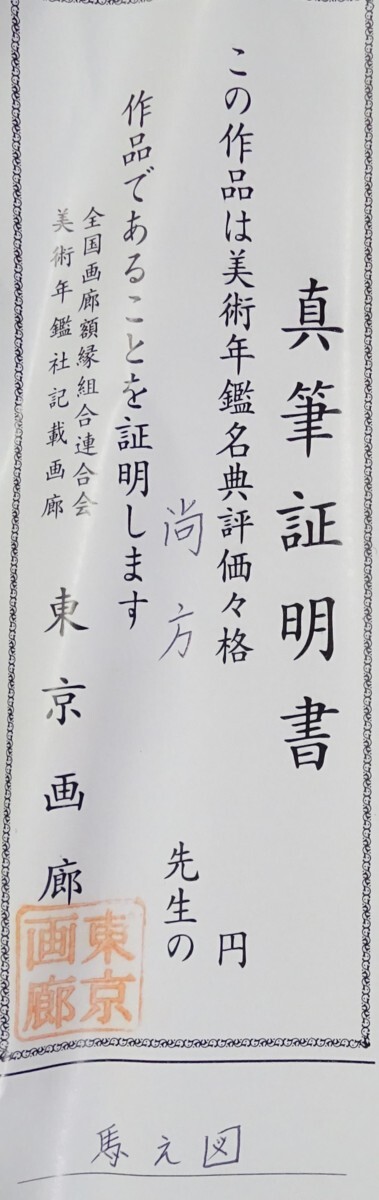 真筆証明書
この作品は美術年鑑名典評価々格 円
尚方 先生の
作品であることを証明します
全国画廊額縁組合連合会
美術年鑑社記載画廊
東京画廊
東京画廊
馬え図